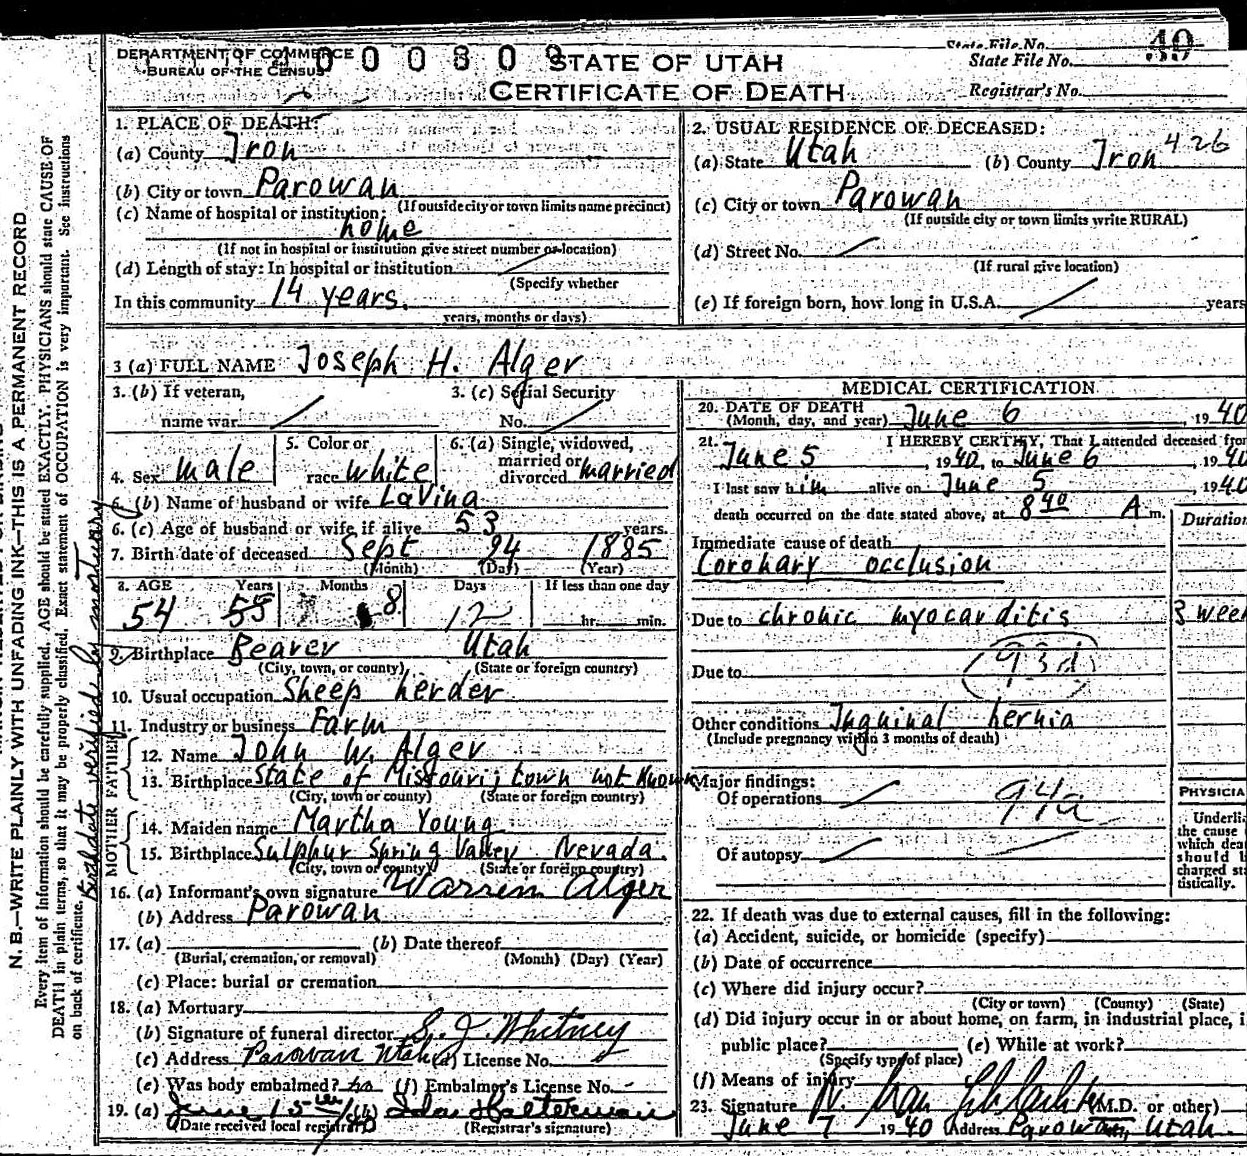 DEPARTMENT OF COMMERCE
BUREAU OF THE CENSUS
STATE OF UTAH
CERTIFICATE OF DEATH
State File No.
State File No. 49
Registrar's No.
N. B.—WRITE PLAINLY WITH UNFADING INK—THIS IS A PERMANENT RECORD
Every item of information should be carefully supplied. AGE should be stated EXACTLY. PHYSICIANS should state CAUSE OF
DEATH in plain terms, so that it may be properly classified. Exact statement of OCCUPATION is very important. See instructions
on back of certificate.
verified by mortuary
1. PLACE OF DEATH:
(a) County Iron
(b) City or town Parowan
(If outside city or town limits name precinct)
(c) Name of hospital or institution:
home
(If not in hospital or institution give street number or location)
(d) Length of stay: In hospital or institution
(Specify whether
In this community 14 years.
years, months or days)
2. USUAL RESIDENCE OF DECEASED:
(a) State Utah (b) County Iron 426
(c) City or town Parowan
(If outside city or town limits write RURAL)
(d) Street No.
(If rural give location)
(e) If foreign born, how long in U.S.A. years
3 (a) FULL NAME Joseph H. Alger
3. (b) If veteran,
name war
3. (c) Social Security
No.
4. Sex male
5. Color or
race white
6. (a) Single, widowed,
married or
divorced married
6. (b) Name of husband or wife LaVina
6. (c) Age of husband or wife if alive 53 years.
7. Birth date of deceased Sept 24 1885
(Month) (Day) (Year)
8. AGE Years Months Days If less than one day
54 55 8 12 hr. min.
9. Birthplace Beaver Utah
(City, town, or county) (State or foreign country)
10. Usual occupation Sheep herder
11. Industry or business Farm
FATHER
12. Name John W. Alger
13. Birthplace State of Missouri; town not Known
(City, town or county) (State or foreign country)
MOTHER
14. Maiden name Martha Young
15. Birthplace Sulphur Spring Valley Nevada.
(City, town or county) (State or foreign country)
16. (a) Informant's own signature Warren Alger
(b) Address Parowan
17. (a) (b) Date thereof
(Burial, cremation, or removal) (Month) (Day) (Year)
(c) Place: burial or cremation
18. (a) Mortuary
(b) Signature of funeral director S. J. Whitney
(c) Address Parowan Utah (d) License No.
(e) Was body embalmed? no (f) Embalmer's License No. -
19. (a) June 15 (b) Ida Halterman
(Date received local registrar) (Registrar's signature)
MEDICAL CERTIFICATION
20. DATE OF DEATH
(Month, day, and year) June 6, 1940
21. I HEREBY CERTIFY, That I attended deceased from
June 5, 1940, to June 6, 1940
I last saw him alive on June 5 1940
death occurred on the date stated above, at 8 40 A m.
Duration
Immediate cause of death
Coronary occlusion
Due to chronic myocarditis 3 week
Due to 93d
Other conditions Inguinal hernia
(Include pregnancy within 3 months of death)
Major findings:
Of operations 94a
Of autopsy
PHYSICIA
Underli
the cause
which dea
should b
charged sta
tistically.
22. If death was due to external causes, fill in the following:
(a) Accident, suicide, or homicide (specify)
(b) Date of occurrence
(c) Where did injury occur?
(City or town) (County) (State)
(d) Did injury occur in or about home, on farm, in industrial place, i
public place? (e) While at work?
(Specify type of place)
(f) Means of injury
23. Signature (M.D. or other)
June 7 1940 Address Parowan, Utah.